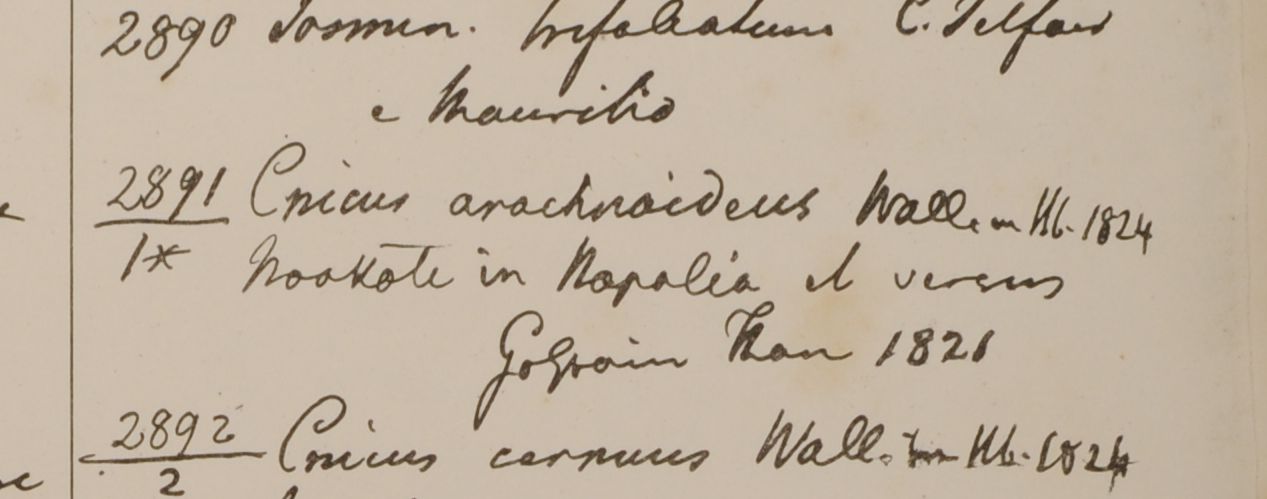 2890 Josmin. trifoliatum C. Telfair
e Mauritio
2891 Cnicus arachnoideus Wall. in Hb. 1824
1* Noakote in Napalia et versus
Than 1821
2892 Cnicus cernuus Wall. in Hb. 1824
2